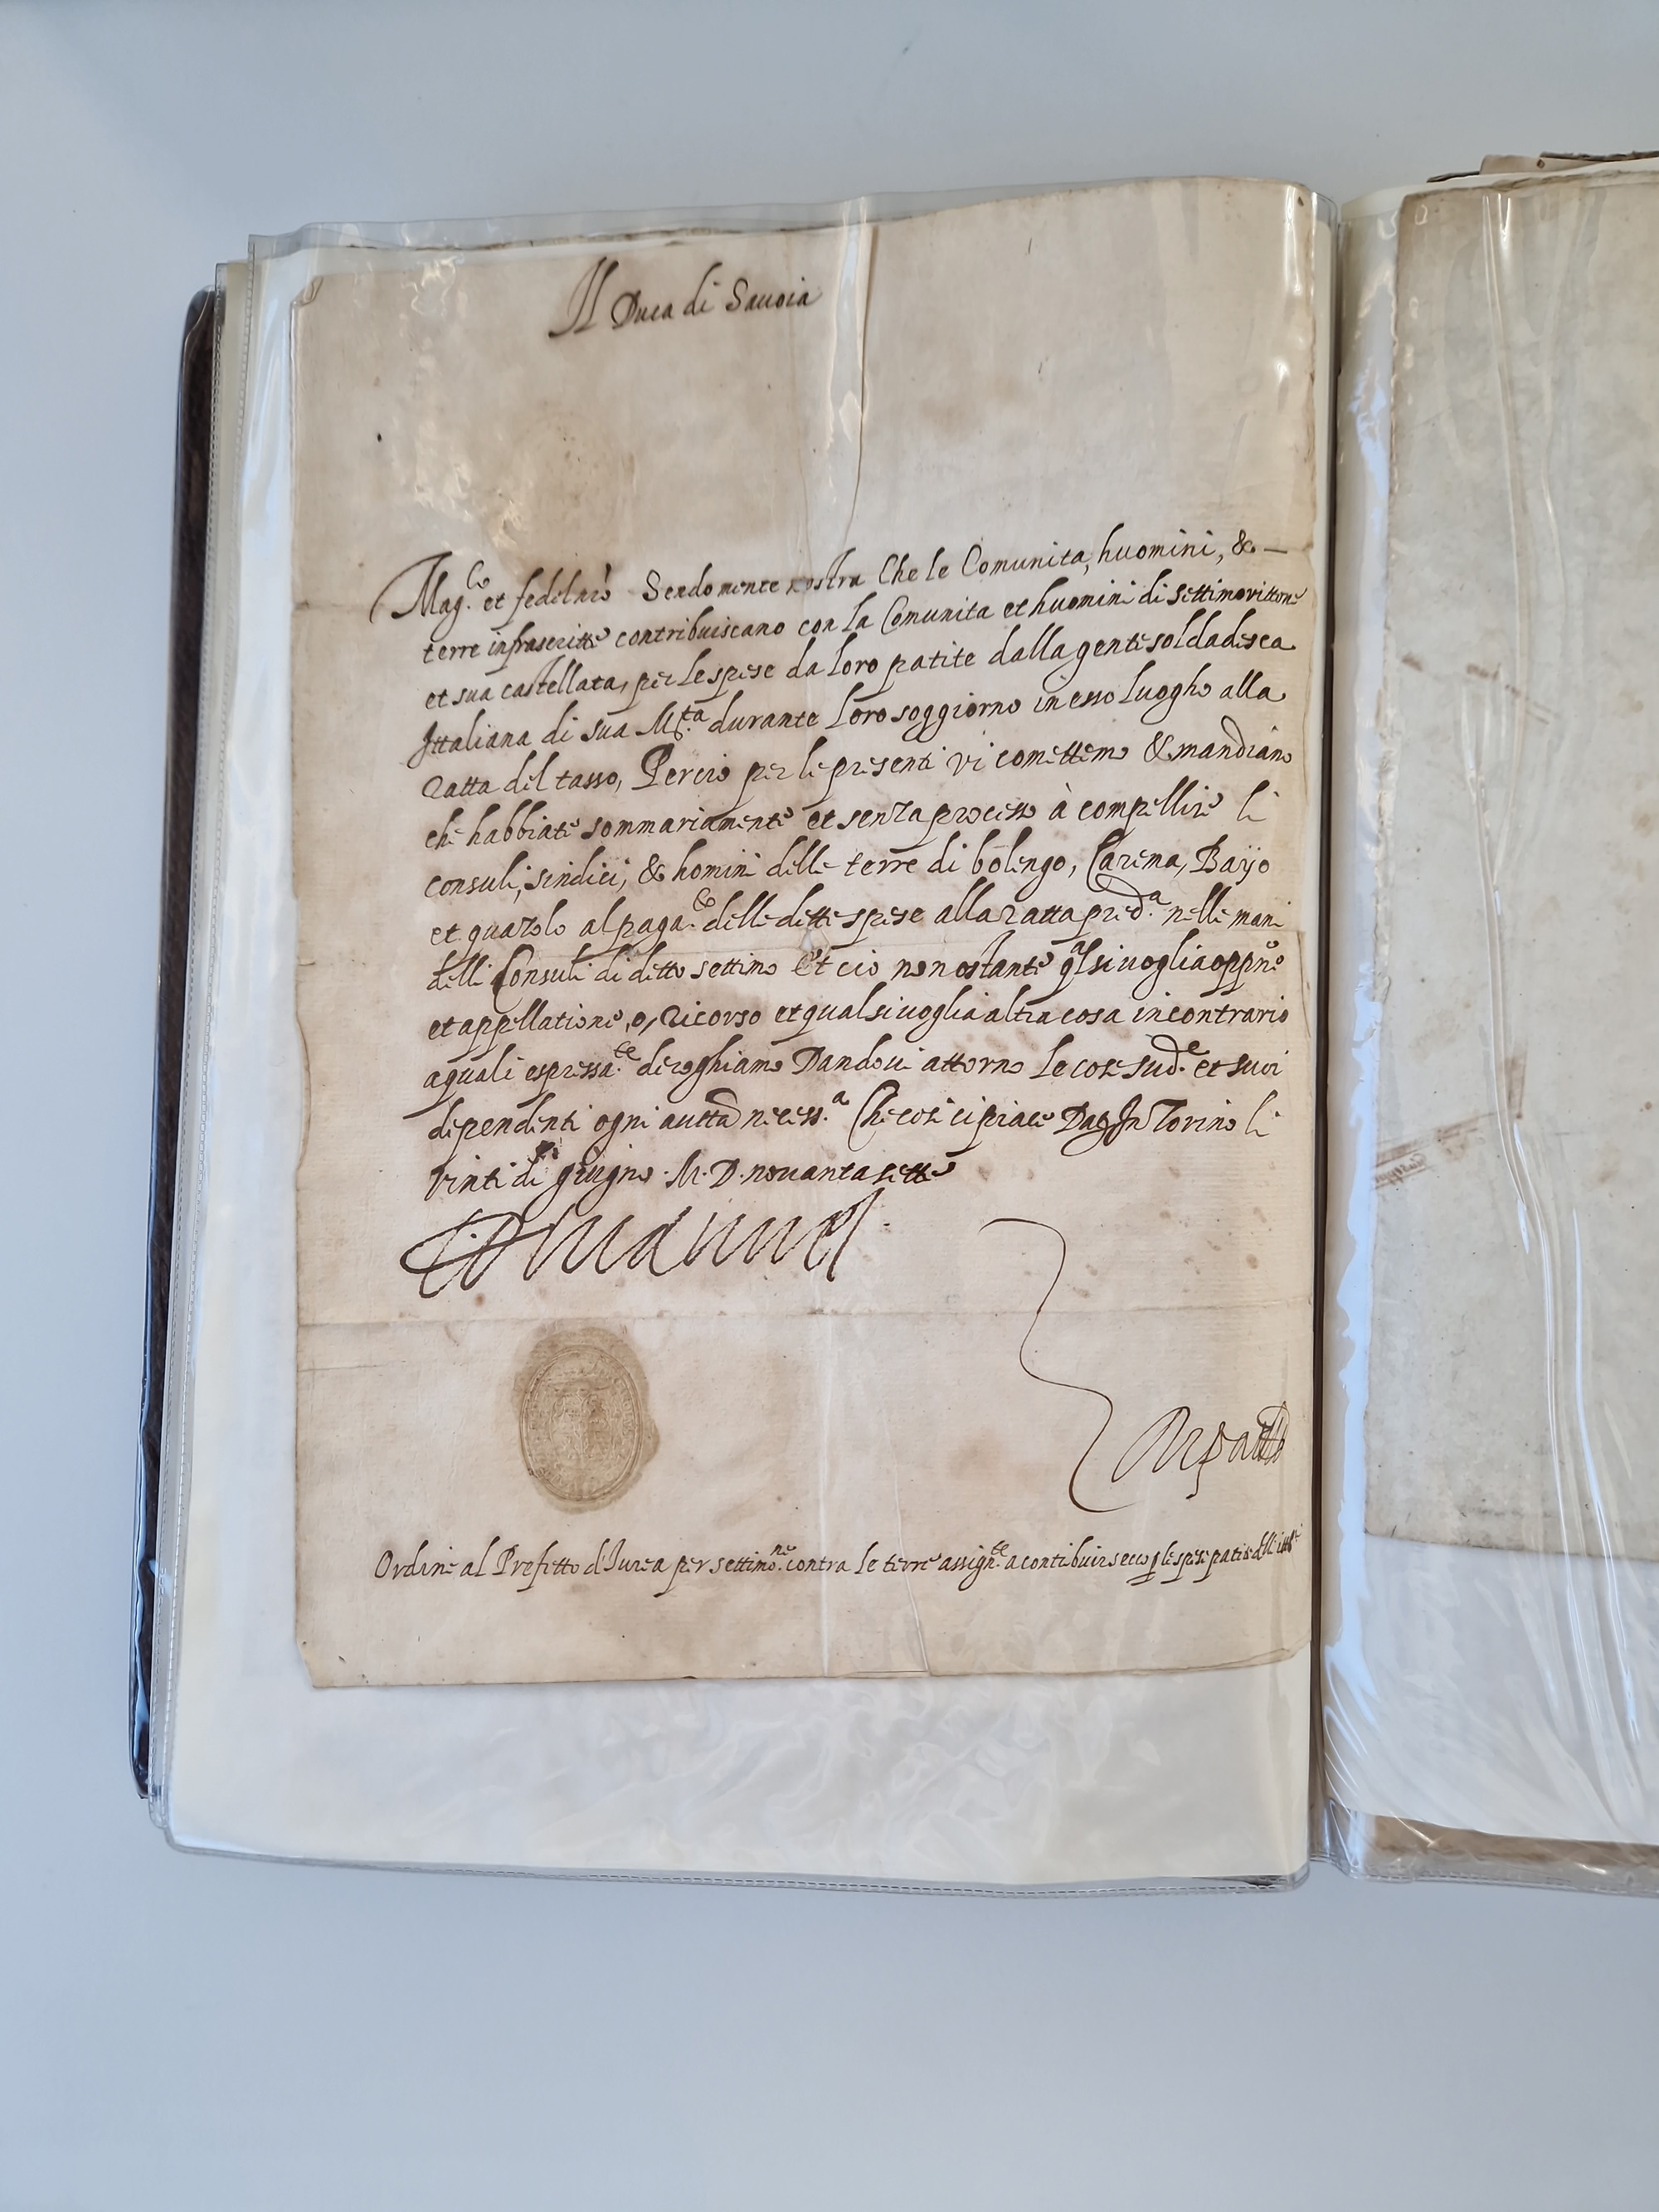 Il Duca di Sauoia
Mag.co et fedel nro Sendo mente nostra Che le Comunita, huomini, &
terre infrascritte contribuiscano con la Comunita et huomini di settimo vittone
et sua castellata, per le spese da loro patite dalla gente soldadesca
Ittaliana di sua M.ta durante loro soggiorno in esso luogho alla
ratta del tasso, Percio per le presenti vi comettemo & mandiamo
che habbiate sommariamente et senza processo à compellire li
consuli, sindici, & homini delle terre di bolengo, Carema, Baijo
et quazolo al paga.to delle dette spese alla ratta pred.a nelle mani
delli Consuli di detto settimo Et cio non ostante qlsiuoglia oppne
et appellatione, o, ricorso et qualsiuoglia altra cosa in contrario
a quali espressa.te deroghiamo Dandoui attorno le cose sud.e et suoi
dependenti ogni autta necess.a Che cosi ci piace Dat In Torino li
vinti di giugno M. D. nouanta sette
Emanuel
Ordine al Prefetto d'Iurea per settimo.ne contra le terre assign.te a contibuir secco p le spese patite